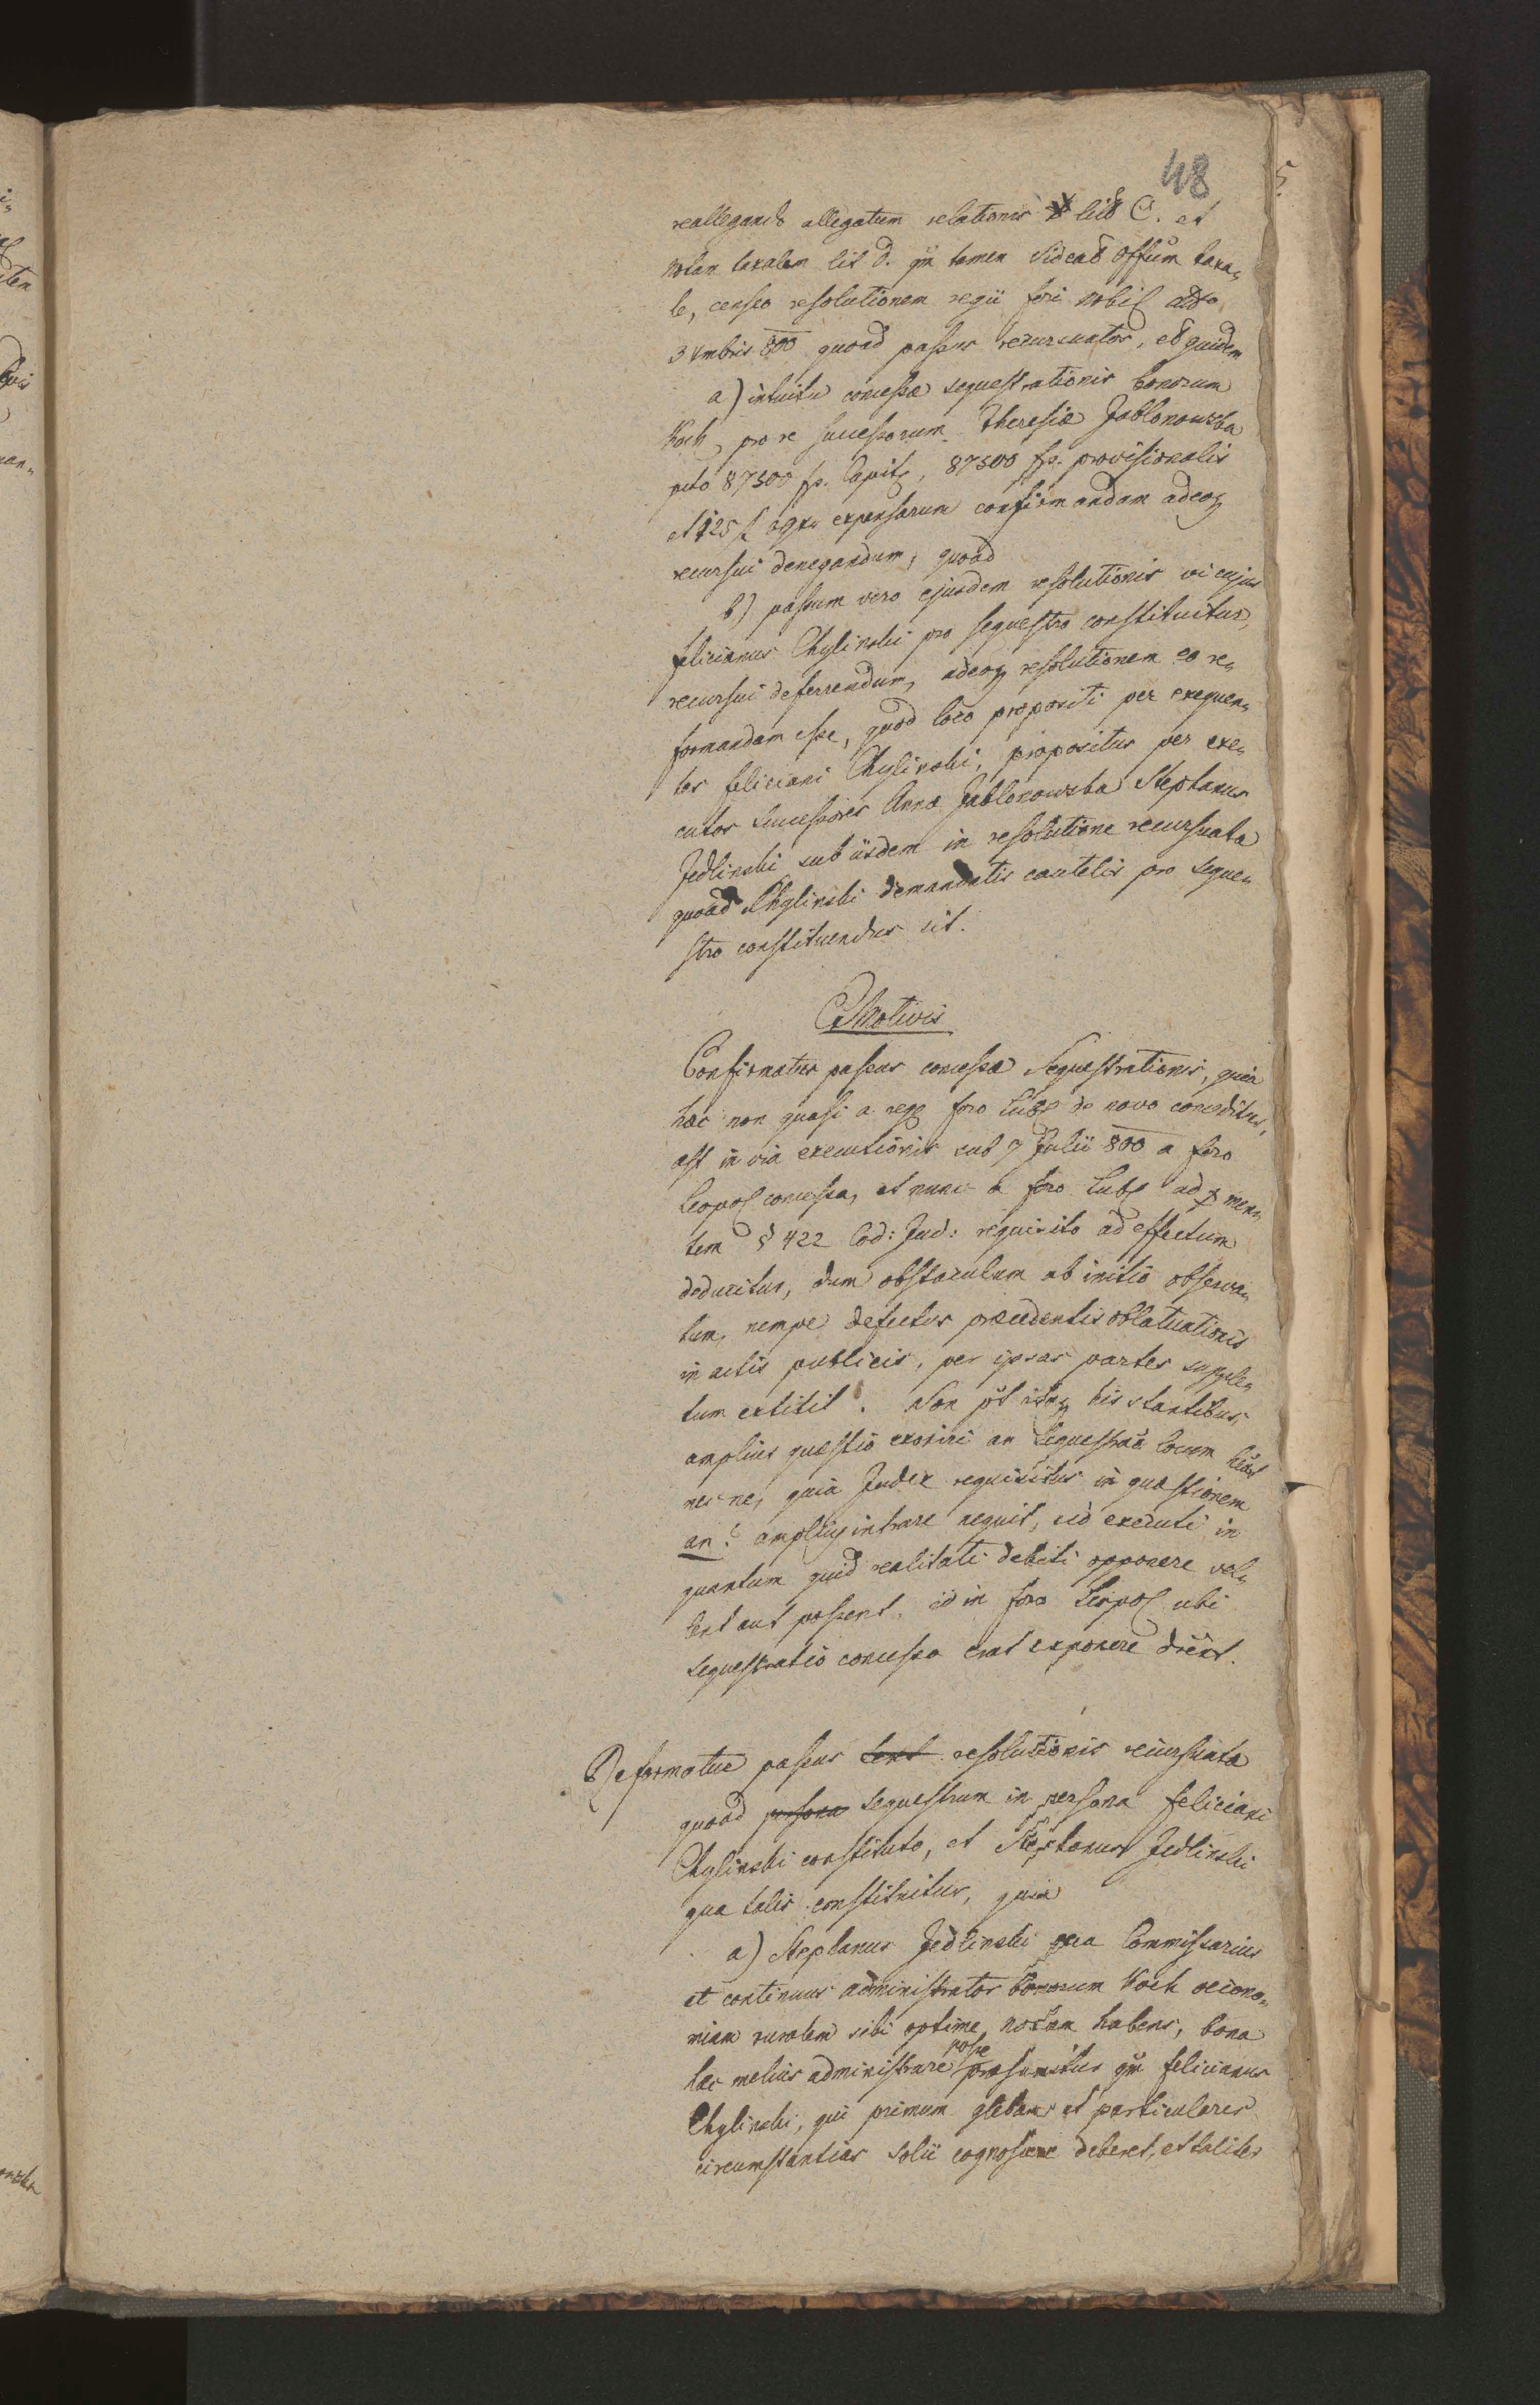 48
reallegando allegatum relationis lit C. et
notam taxalem lit D. qm tamen Videat Offum taxa„
le, censeo resolutionem regii fori nobil ddto
3 Xmbris 800 quoad passus recursuatos, et quidem
a) intuitu concessæ sequestrationis bonorum
Kock, pro re successorum Theresiæ Jablonowska
pcto 87500 fp. Capit, 87500 fp. provisionalis
et 125 f 29xr expensarum confirmandam adeoq
recursui denegandum, quoad
b) passum vero ejusdem resolutionis vi cujus
Felicianus Chylinski pro sequestro constituitur,
recursui deferrendum, adeoq resolutionem eo re„
formandam esse, quod loco propositi per exequen„
tes Feliciani Chylinski, propositus per exe„
cutos successores Annæ Jablonowska Stephanus
Jedlinski sub iisdem in resolutione recursuata
quoad Chylinski demandatis cautelis pro seque„
stro constituendus sit.
Ex Motivis
Confirmatur passus concessæ Sequestrationis, quia
hæc non quasi a reg foro Lubl de novo conceditur,
ast in via executionis sub 7 Julii 800 a foro
Leopol concessa, et nunc a foro Lubl ad men„
tem § 422 Cod: Jud: requisito ad effectum
deducitur, dum obstaculum ab initio observa„
tum, nempe defectus præcedentis oblatuationis
in actis publicis, per ipsas partes supple„
tum extitit. Non pot itaq his stantibus
amplius quæstio exoriri an Sequestrao locum heat
nec ne, quia Judex requisitus in quæstionem
an? amplius intrare nequit, sed executi in
quantum quid realitati debiti opponere vel„
lent aut possent, id in foro Leopol ubi
sequestratio concessa erat exponere debent.
Reformatur passus resolutionis recursuatæ
quoad persona sequestrum in persona Feliciani
Chylinski constituto, et Stephanus Jedlinski
qua talis constituitur, quia
a) Stephanus Jedlinski qua Commissarius
et continuus administrator bonorum Kock oecono„
miam ruralem sibi optime notam habens, bona
hæc melius administrare posse præsumitur qm Felicianus
Chylinski, qui primum glebam et particulares
circumstantias solii cognoscere deberet, et taliter